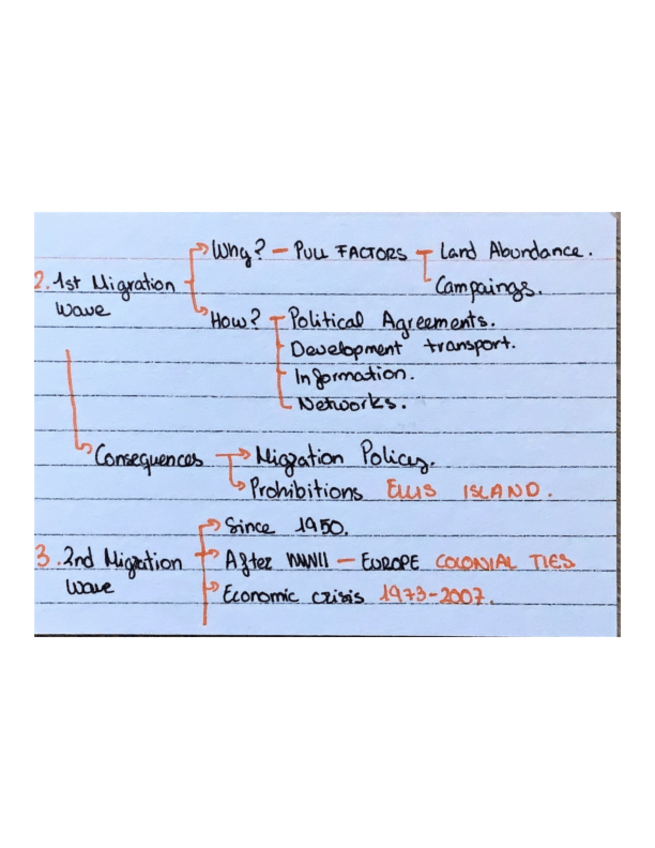 Why? – PULL FACTORS Land Abundance.
2. 1st Migration Campaings.
Wave
How? Political Agreements.
Development transport.
Information.
Networks.
Consequences Migration Policy.
Prohibitions ELLIS ISLAND.
Since 1950.
3. 2nd Migration After WWII – EUROPE COLONIAL TIES
Wave Economic crisis 1973-2007.